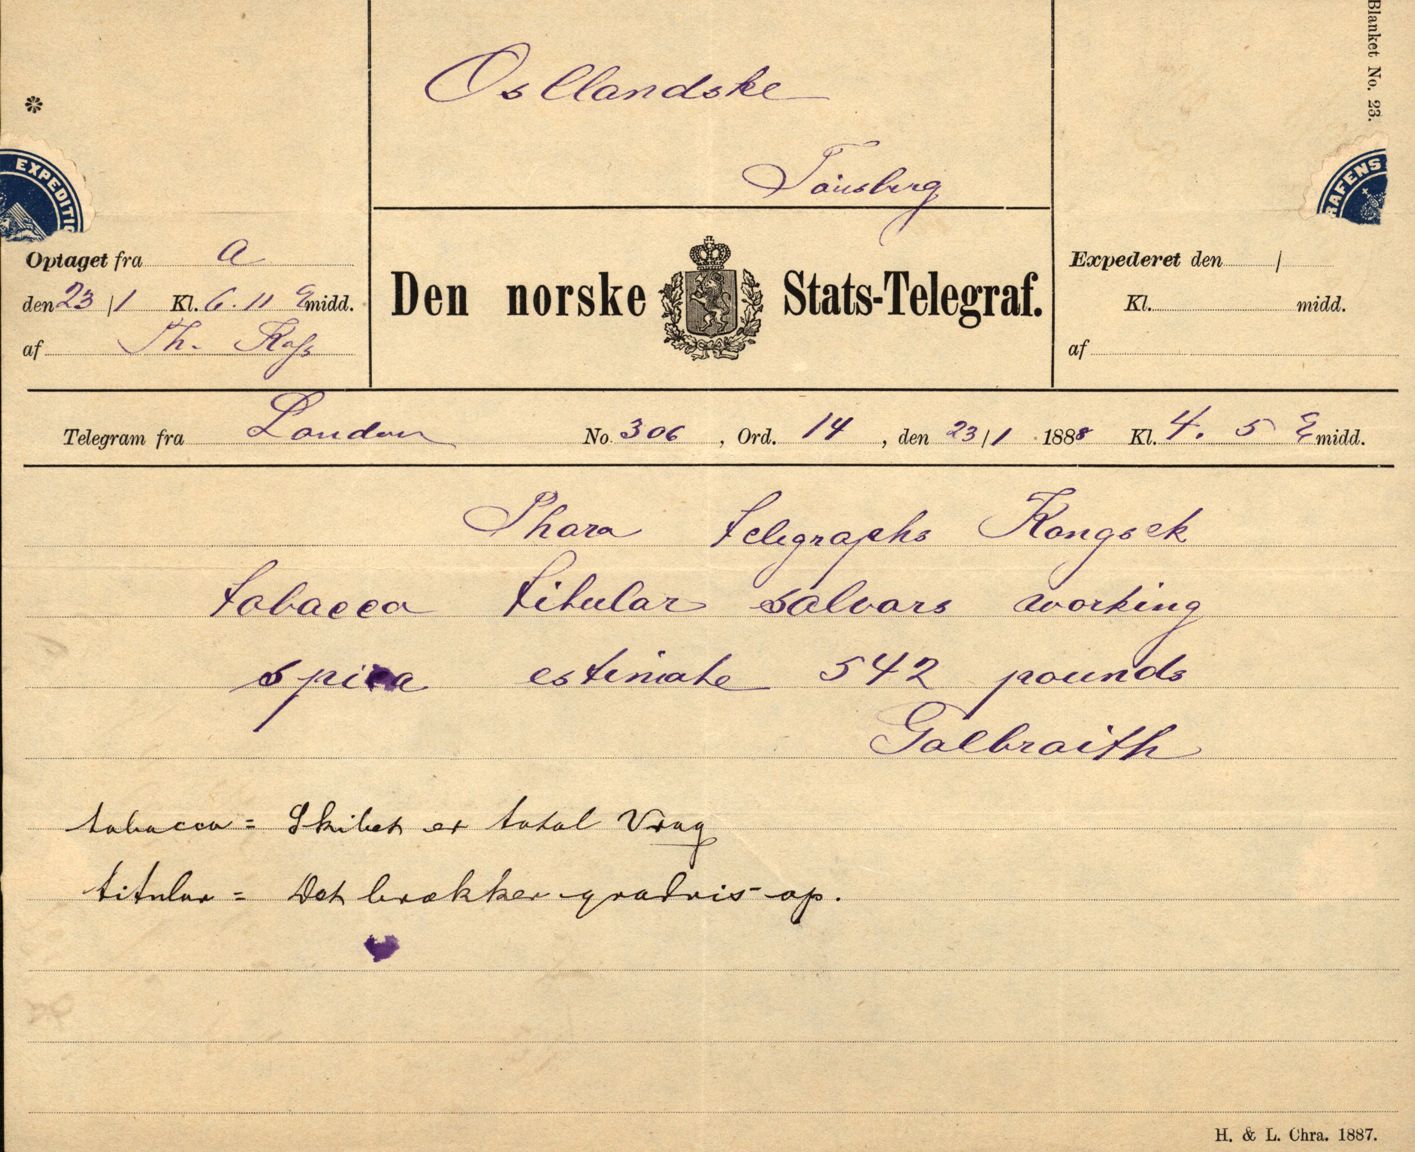 Blanket No. 23.
Osllandske
Tönsberg
EXPEDITI
RAFENS
Optaget fra a
den 23/1 Kl. 6.11 E midd.
af Th. Kass
Den norske Stats-Telegraf.
Expederet den /
Kl. midd.
af
Telegram fra London No. 306, Ord. 14, den 23/1 1888 Kl. 4.5 E midd.
Phara telegraphs Kongsek
tobacco titular salvors working
spica estimate 542 pounds
Galbraith
tobacco = Skibet er total Vrag
titular = Det brækker gradvis op.
H. & L. Chra. 1887.